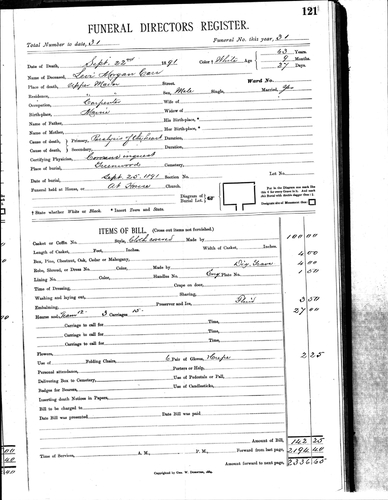 121
FUNERAL DIRECTORS REGISTER.
Total Number to date, 31 Funeral No. this year, 31
Date of Death, Sept. 22nd 1891 Color † White Age 63 Years.
9 Months.
27 Days.
Name of Deceased, Levi Morgan
Place of death, Upper Street, Ward No.
Residence, Sex, Male Single, Married, yes
Occupation, Carpenter Wife of
Birthplace, Maine Widow of
Name of Father, His Birthplace, *
Name of Mother, Her Birthplace, *
Cause of death, Primary, Paralysis of Duration,
Cause of death, Secondary, Duration,
Certifying Physician, Coroners inquest
Place of burial, Greenwood Cemetery,
Date of burial, Sept. 25 1891 Section No. Lot No.
Funeral held at House, or At House Church.
Diagram of Burial Lot.
† State whether White or Black. * Insert Town and State.
ITEMS OF BILL. (Cross out items not furnished.)
Casket or Coffin No. Style, Cloth covered Made by 100 00
Length of Casket, Feet, Inches. Width of Casket, Inches.
Box, Pine, Chestnut, Oak, Cedar or Mahogany, 4 00
Robe, Shroud, or Dress No. Color, Made by Dig. Grave 4 00
Lining No. Color, Handles No. Plate No. 1 50
Time of Dressing, Crape on door,
Washing and laying out, Shaving,
Embalming, Preserver and Ice, Fluid 3 50
Hearse 12- 3 Carriages 15- 27 00
Carriage to call for Time,
Carriage to call for Time,
Carriage to call for Time,
Carriage to call for Time,
Flowers,
Use of Folding Chairs, 6 Pair of Gloves, 2 25
Personal attendance, Porters or Help,
Delivering Box to Cemetery, Use of Pedestals or Pall,
Badges for Bearers, Use of Candlesticks,
Inserting death Notices in Papers,
Bill to be charged to
Date Bill was presented Date Bill was paid
Amount of Bill, 142 25
Time of Services, A. M., P. M., Forward from last page, 2194 40
Amount forward to next page, 2336 65